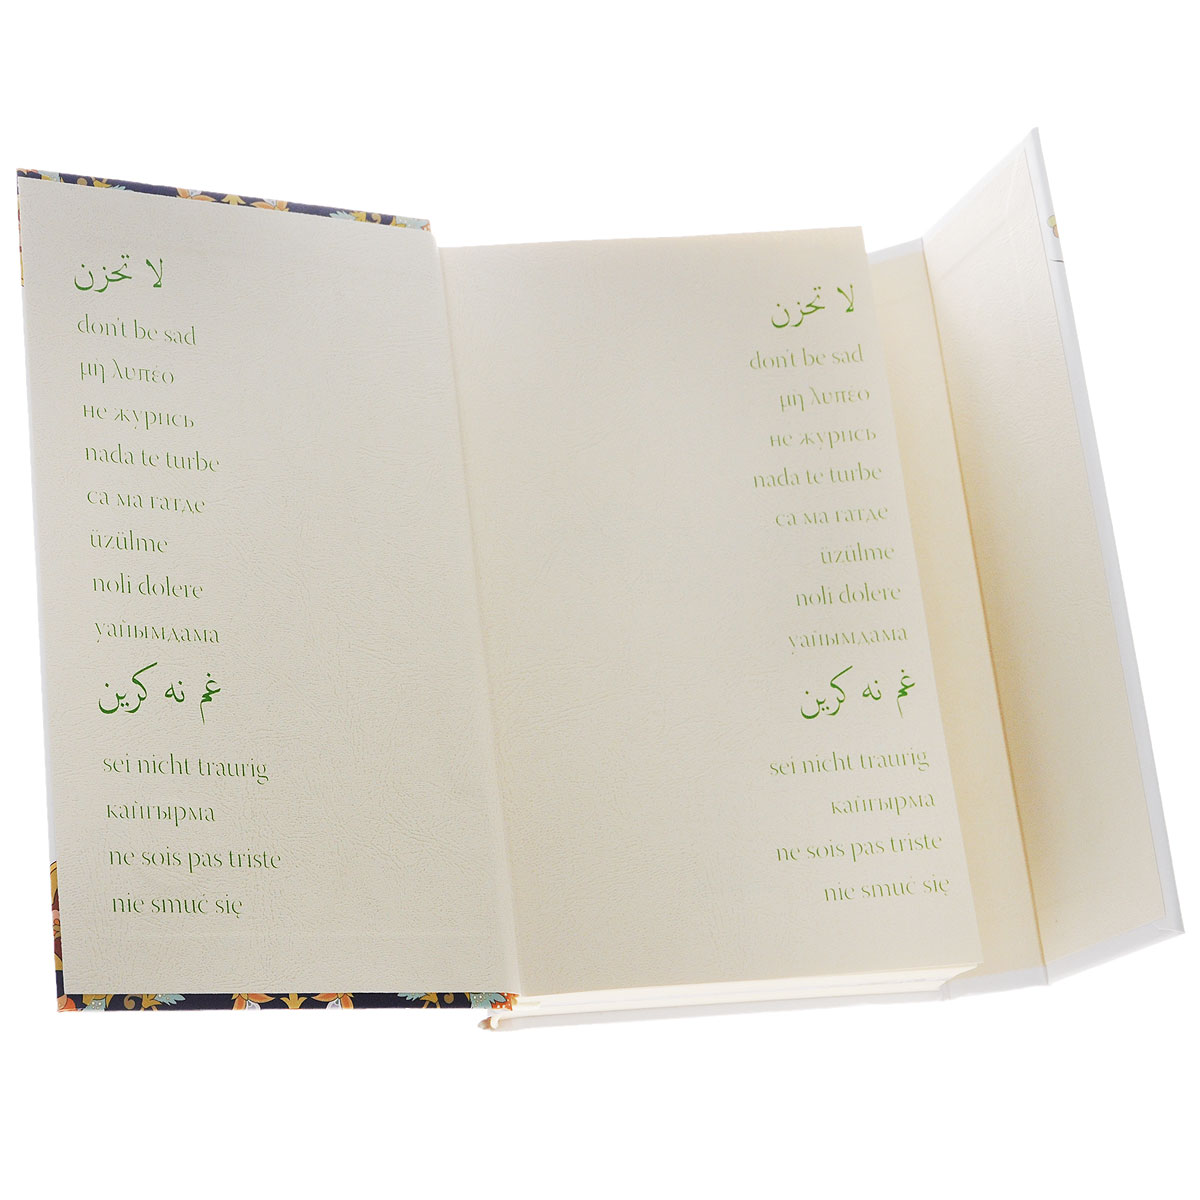 لا تحزن
don't be sad
μὴ λυπέο
не журись
nada te turbe
са ма гатде
üzülme
noli dolere
уайымдама
غم نه كرين
sei nicht traurig
кайгырма
ne sois pas triste
nie smuć się
لا تحزن
don't be sad
μὴ λυπέο
не журись
nada te turbe
са ма гатде
üzülme
noli dolere
уайымдама
غم نه كرين
sei nicht traurig
кайгырма
ne sois pas triste
nie smuć się